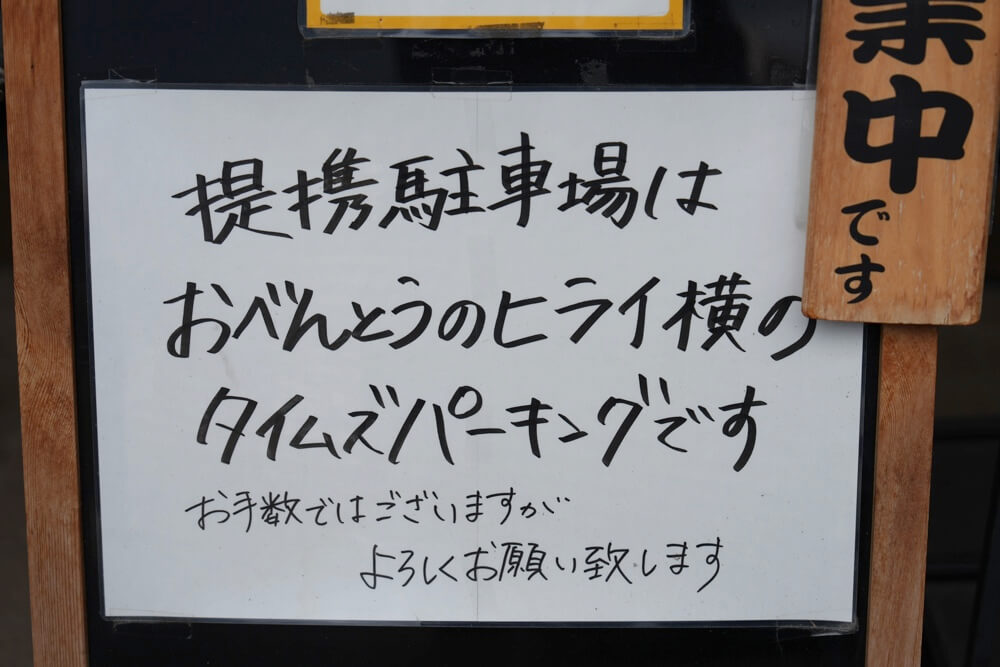 提携駐車場は
おべんとうのヒライ横の
タイムズパーキングです
お手数ではございますが
よろしくお願い致します
中
です